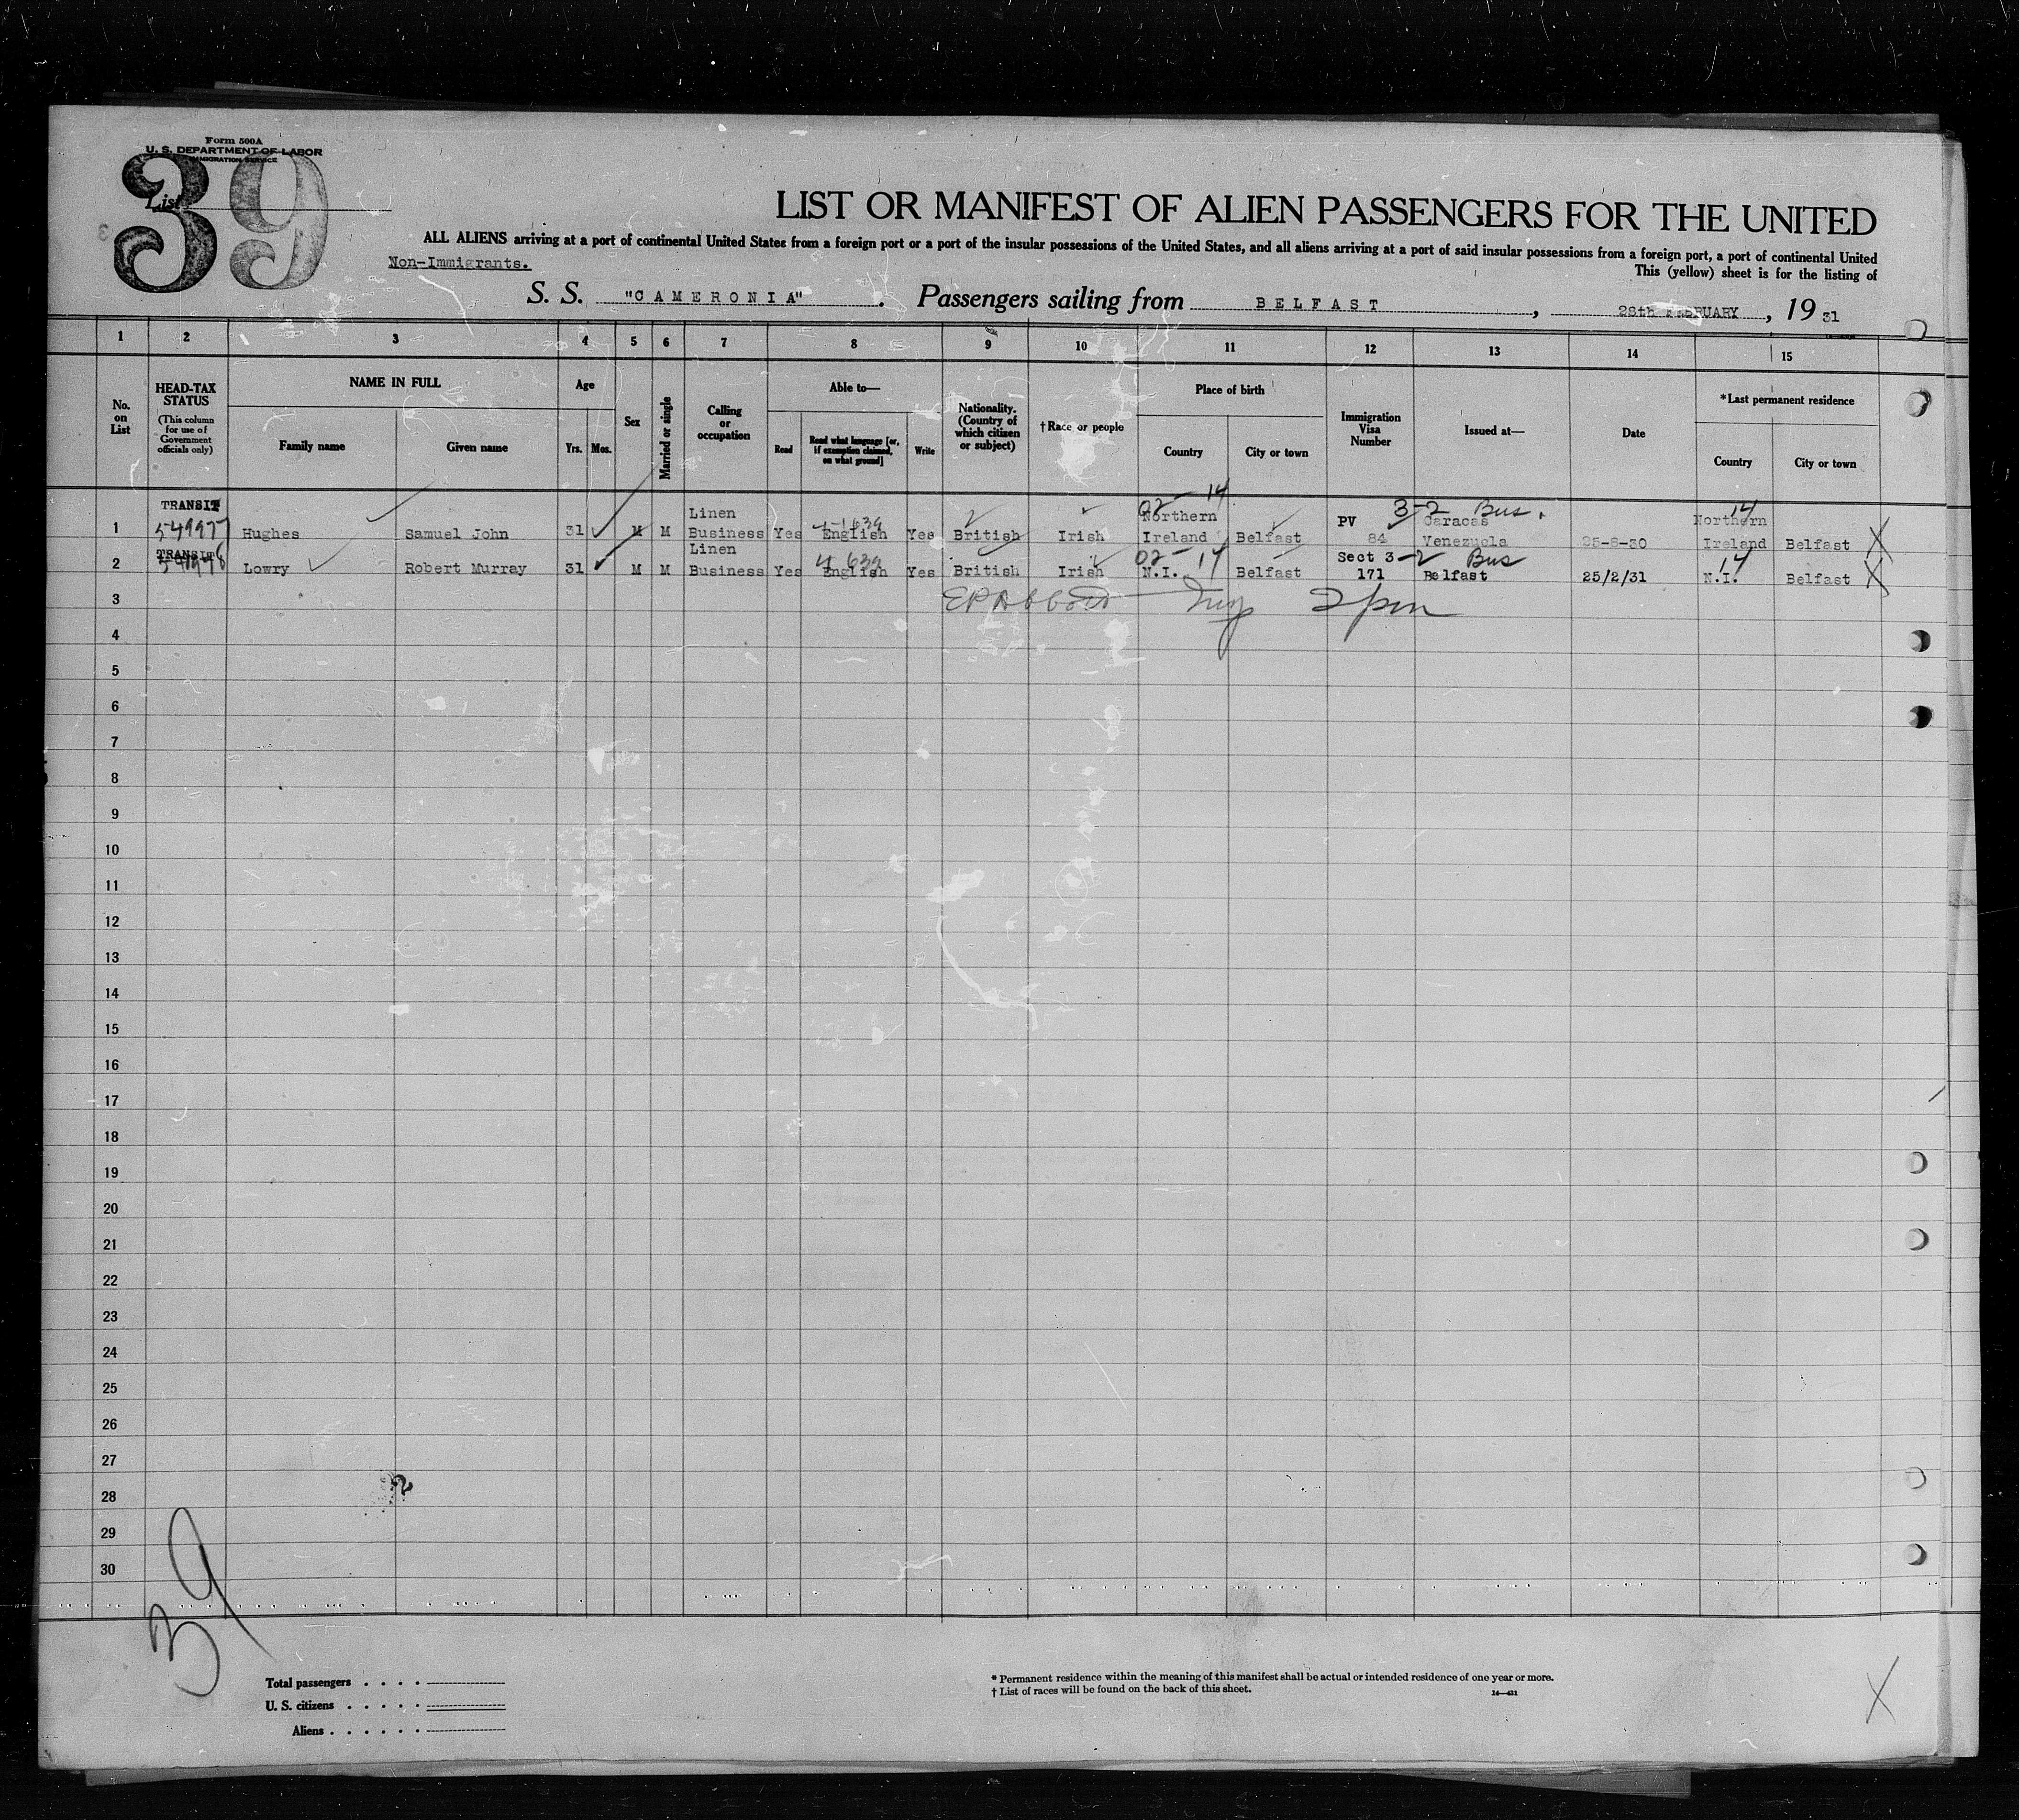 Form 500A
U. S. DEPARTMENT OF LABOR
IMMIGRATION SERVICE
39
List
LIST OR MANIFEST OF ALIEN PASSENGERS FOR THE UNITED
ALL ALIENS arriving at a port of continental United States from a foreign port or a port of the insular possessions of the United States, and all aliens arriving at a port of said insular possessions from a foreign port, a port of continental United
Non-Immigrants.
This (yellow) sheet is for the listing of
S. S. "CAMERONIA". Passengers sailing from BELFAST, 28th FEBRUARY, 1931
1 2 3 4 5 6 7 8 9 10 11 12 13 14 15
No. on List
HEAD-TAX STATUS
(This column for use of Government officials only)
NAME IN FULL
Family name
Given name
Age
Yrs.
Mos.
Sex
Married or single
Calling or occupation
Able to—
Read
Read what language [or, if exemption claimed, on what ground]
Write
Nationality. (Country of which citizen or subject)
† Race or people
Place of birth
Country
City or town
Immigration Visa Number
Issued at—
Date
*Last permanent residence
Country
City or town
TRANSIT 02-14 3-2 Bus. 14
Linen Northern PV Caracas Northern
1 549977 Hughes Samuel John 31 M M Business Yes English Yes British Irish Ireland Belfast 84 Venezuela Ireland Belfast X
TRANSIT Linen 02-14 Sect 3-2 Bus 14
2 Lowry Robert Murray 31 M M Business Yes English Yes British Irish N.I. Belfast 171 Belfast 25/2/31 N.I. Belfast X
3
4
5
6
7
8
9
10
11
12
13
14
15
16
17
18
19
20
21
22
23
24
25
26
27
28
29
30
39
Total passengers
U. S. citizens
Aliens
* Permanent residence within the meaning of this manifest shall be actual or intended residence of one year or more.
† List of races will be found on the back of this sheet.
X